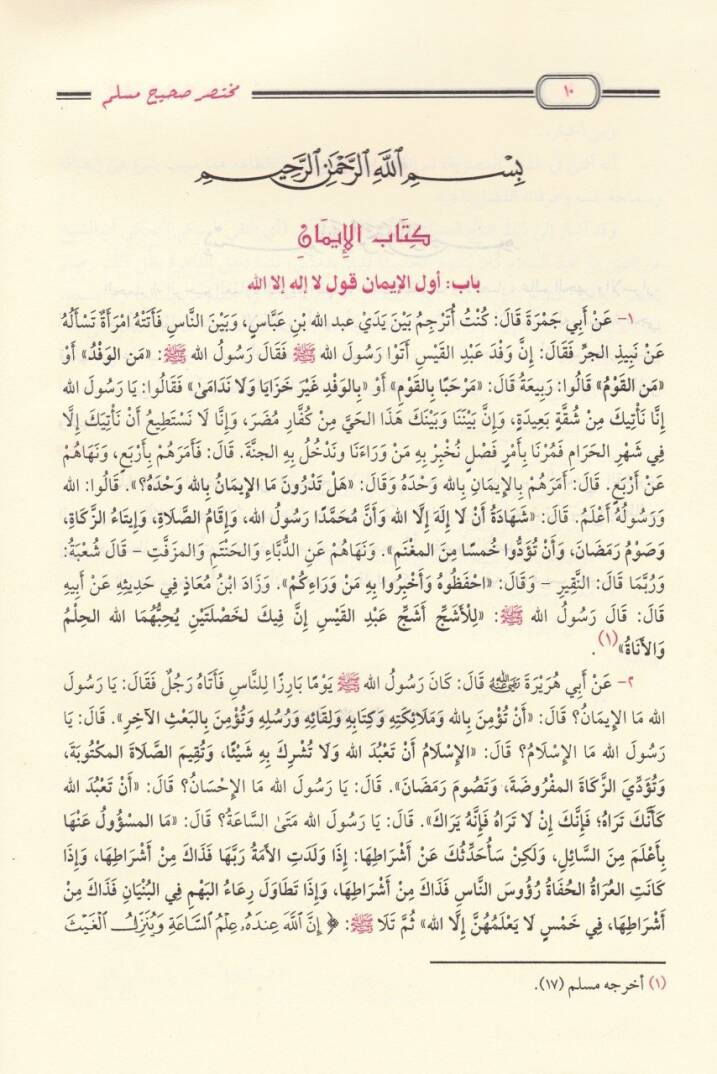 مختصر صحيح مسلم
١٠
بِسْمِ اللَّهِ الرَّحْمَٰنِ الرَّحِيمِ
كِتَاب الإِيمَانِ
باب: أول الإيمان قول لا إله إلا الله
١- عَنْ أَبِي جَمْرَةَ قَالَ: كُنْتُ أُتَرْجِمُ بَيْنَ يَدَيْ عبد الله بْنِ عَبَّاسٍ، وَبَيْنَ النَّاسِ فَأَتَتْهُ امْرَأَةٌ تَسْأَلُهُ
عَنْ نَبِيذِ الجرِّ فَقَالَ: إِنَّ وَفْدَ عَبْدِ القَيْسِ أَتَوْا رَسُولَ الله ﷺ فَقَالَ رَسُولُ الله ﷺ: «مَنِ الوَفْدُ» أَوْ
«مَنِ القَوْمُ» قَالُوا: رَبِيعَةُ قَالَ: «مَرْحَبًا بِالقَوْمِ» أَوْ «بِالوَفْدِ غَيْرَ خَزَايَا وَلَا نَدَامَىٰ» فَقَالُوا: يَا رَسُولَ الله
إِنَّا نَأْتِيكَ مِنْ شُقَّةٍ بَعِيدَةٍ، وَإِنَّ بَيْنَنَا وَبَيْنَكَ هَذَا الحَيَّ مِنْ كُفَّارِ مُضَرَ، وَإِنَّا لَا نَسْتَطِيعُ أَنْ نَأْتِيَكَ إِلَّا
فِي شَهْرِ الحَرَامِ فَمُرْنَا بِأَمْرٍ فَصْلٍ نُخْبِرْ بِهِ مَنْ وَرَاءَنَا وَنَدْخُلُ بِهِ الجنَّةَ. قَالَ: فَأَمَرَهُمْ بِأَرْبَعٍ، وَنَهَاهُمْ
عَنْ أَرْبَعٍ. قَالَ: أَمَرَهُمْ بِالإِيمَانِ بِالله وَحْدَهُ وَقَالَ: «هَلْ تَدْرُونَ مَا الإِيمَانُ بِالله وَحْدَهُ؟». قَالُوا: الله
وَرَسُولُهُ أَعْلَمُ. قَالَ: «شَهَادَةُ أَنْ لَا إِلَهَ إِلَّا الله وَأَنَّ مُحَمَّدًا رَسُولُ الله، وَإِقَامُ الصَّلَاةِ، وَإِيتَاءُ الزَّكَاةِ،
وَصَوْمُ رَمَضَانَ، وَأَنْ تُؤَدُّوا خُمسًا مِنَ المغْنَمِ». وَنَهَاهُمْ عَنِ الدُّبَّاءِ وَالحَنْتَمِ وَالمزَفَّتِ - قَالَ شُعْبَةُ:
وَرُبَّمَا قَالَ: النَّقِيرِ - وَقَالَ: «احْفَظُوهُ وَأَخْبِرُوا بِهِ مَنْ وَرَاءِكُمْ». وَزَادَ ابْنُ مُعَاذٍ فِي حَدِيثِهِ عَنْ أَبِيهِ
قَالَ: قَالَ رَسُولُ الله ﷺ: «لِلْأَشَجِّ أَشَجِّ عَبْدِ القَيْسِ إِنَّ فِيكَ لَخَصْلَتَيْنِ يُحِبُّهُمَا الله الحِلْمُ
وَالأَنَاةُ»(١).
٢- عَنْ أَبِي هُرَيْرَةَ رَضِيَ اللهُ عَنْهُ قَالَ: كَانَ رَسُولُ الله ﷺ يَوْمًا بَارِزًا لِلنَّاسِ فَأَتَاهُ رَجُلٌ فَقَالَ: يَا رَسُولَ
الله مَا الإِيمَانُ؟ قَالَ: «أَنْ تُؤْمِنَ بِالله وَمَلَائِكَتِهِ وَكِتَابِهِ وَلِقَائِهِ وَرُسُلِهِ وَتُؤْمِنَ بِالبَعْثِ الآخِرِ». قَالَ: يَا
رَسُولَ الله مَا الإِسْلَامُ؟ قَالَ: «الإِسْلَامُ أَنْ تَعْبُدَ الله وَلَا تُشْرِكَ بِهِ شَيْئًا، وَتُقِيمَ الصَّلَاةَ المكْتُوبَةَ،
وَتُؤَدِّيَ الزَّكَاةَ المفْرُوضَةَ، وَتَصُومَ رَمَضَانَ». قَالَ: يَا رَسُولَ الله مَا الإِحْسَانُ؟ قَالَ: «أَنْ تَعْبُدَ الله
كَأَنَّكَ تَرَاهُ؛ فَإِنَّكَ إِنْ لَا تَرَاهُ فَإِنَّهُ يَرَاكَ». قَالَ: يَا رَسُولَ الله مَتَىٰ السَّاعَةُ؟ قَالَ: «مَا المسْؤُولُ عَنْهَا
بِأَعْلَمَ مِنَ السَّائِلِ، وَلَكِنْ سَأُحَدِّثُكَ عَنْ أَشْرَاطِهَا: إِذَا وَلَدَتِ الأَمَةُ رَبَّهَا فَذَاكَ مِنْ أَشْرَاطِهَا، وَإِذَا
كَانَتِ العُرَاةُ الحُفَاةُ رُؤُوسَ النَّاسِ فَذَاكَ مِنْ أَشْرَاطِهَا، وَإِذَا تَطَاوَلَ رِعَاءُ البَهْمِ فِي البُنْيَانِ فَذَاكَ مِنْ
أَشْرَاطِهَا، فِي خَمْسٍ لَا يَعْلَمُهُنَّ إِلَّا الله» ثُمَّ تَلَا ﷺ: ﴿ إِنَّ اللَّهَ عِندَهُ عِلْمُ السَّاعَةِ وَيُنَزِّلُ الْغَيْثَ
(١) أخرجه مسلم (١٧).